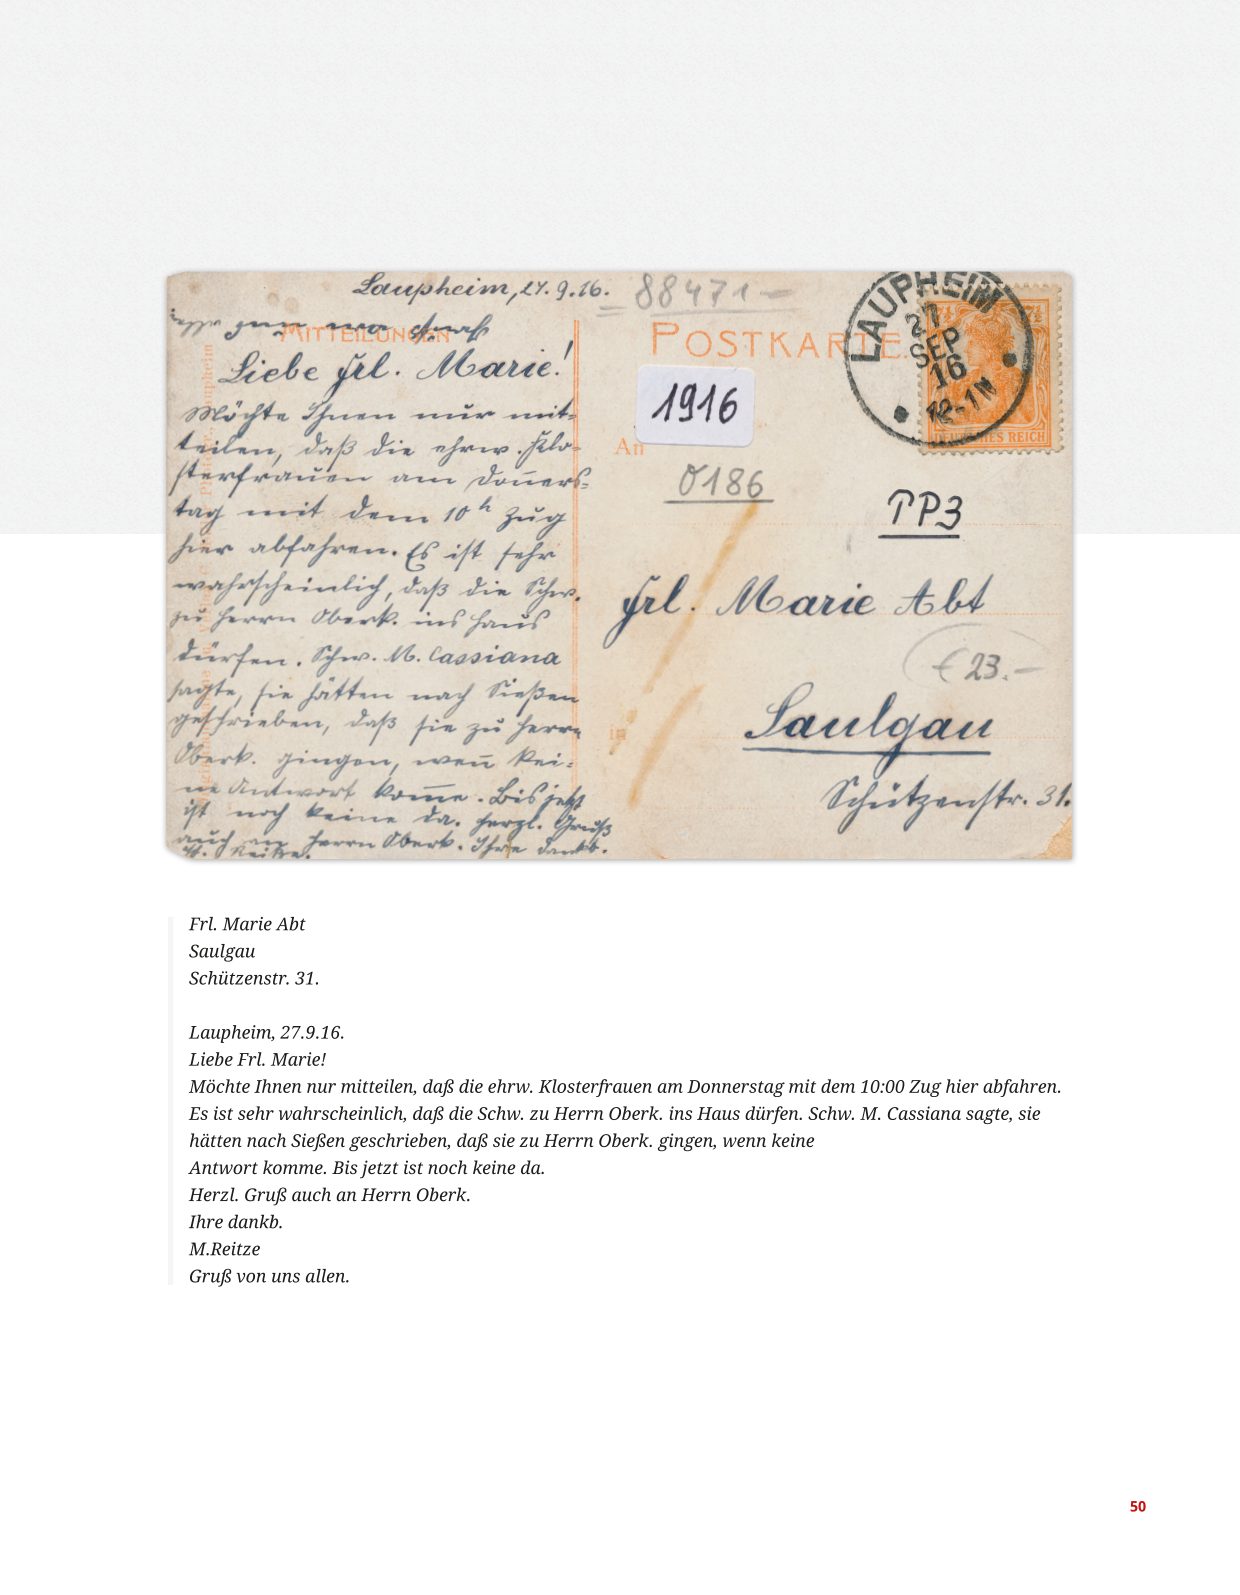 Laupheim, 27.9.16.
88471 –
MITTEILUNGEN
Gruß von uns allen.
Liebe Frl. Marie!
Möchte Ihnen nur mit-
teilen, daß die ehrw. Klo-
sterfrauen am Doners-
tag mit dem 10 h Zug
hier abfahren. Es ist sehr
wahrscheinlich, daß die Schw.
zu Herrn Oberk. ins Haus
dürfen. Schw. M. Cassiana
sagte, sie hätten nach Sießen
geschrieben, daß sie zu Herrn
Oberk. gingen, wen̄ kei-
ne Antwort kom̄e. Bis jetzt
ist noch keine da. Herzl. Gruß
auch an Herrn Oberk. Ihre dankb.
M. Reitze.
POSTKARTE
LAUPHEIM
27
SEP
16
12-1N
7½ 7½
DEUTSCHES REICH
1916
An
0186
PP3
Frl. Marie Abt
€ 23.–
in
Saulgau
Schützenstr. 31.
Frl. Marie Abt
Saulgau
Schützenstr. 31.
Laupheim, 27.9.16.
Liebe Frl. Marie!
Möchte Ihnen nur mitteilen, daß die ehrw. Klosterfrauen am Donnerstag mit dem 10:00 Zug hier abfahren.
Es ist sehr wahrscheinlich, daß die Schw. zu Herrn Oberk. ins Haus dürfen. Schw. M. Cassiana sagte, sie
hätten nach Sießen geschrieben, daß sie zu Herrn Oberk. gingen, wenn keine
Antwort komme. Bis jetzt ist noch keine da.
Herzl. Gruß auch an Herrn Oberk.
Ihre dankb.
M.Reitze
Gruß von uns allen.
50